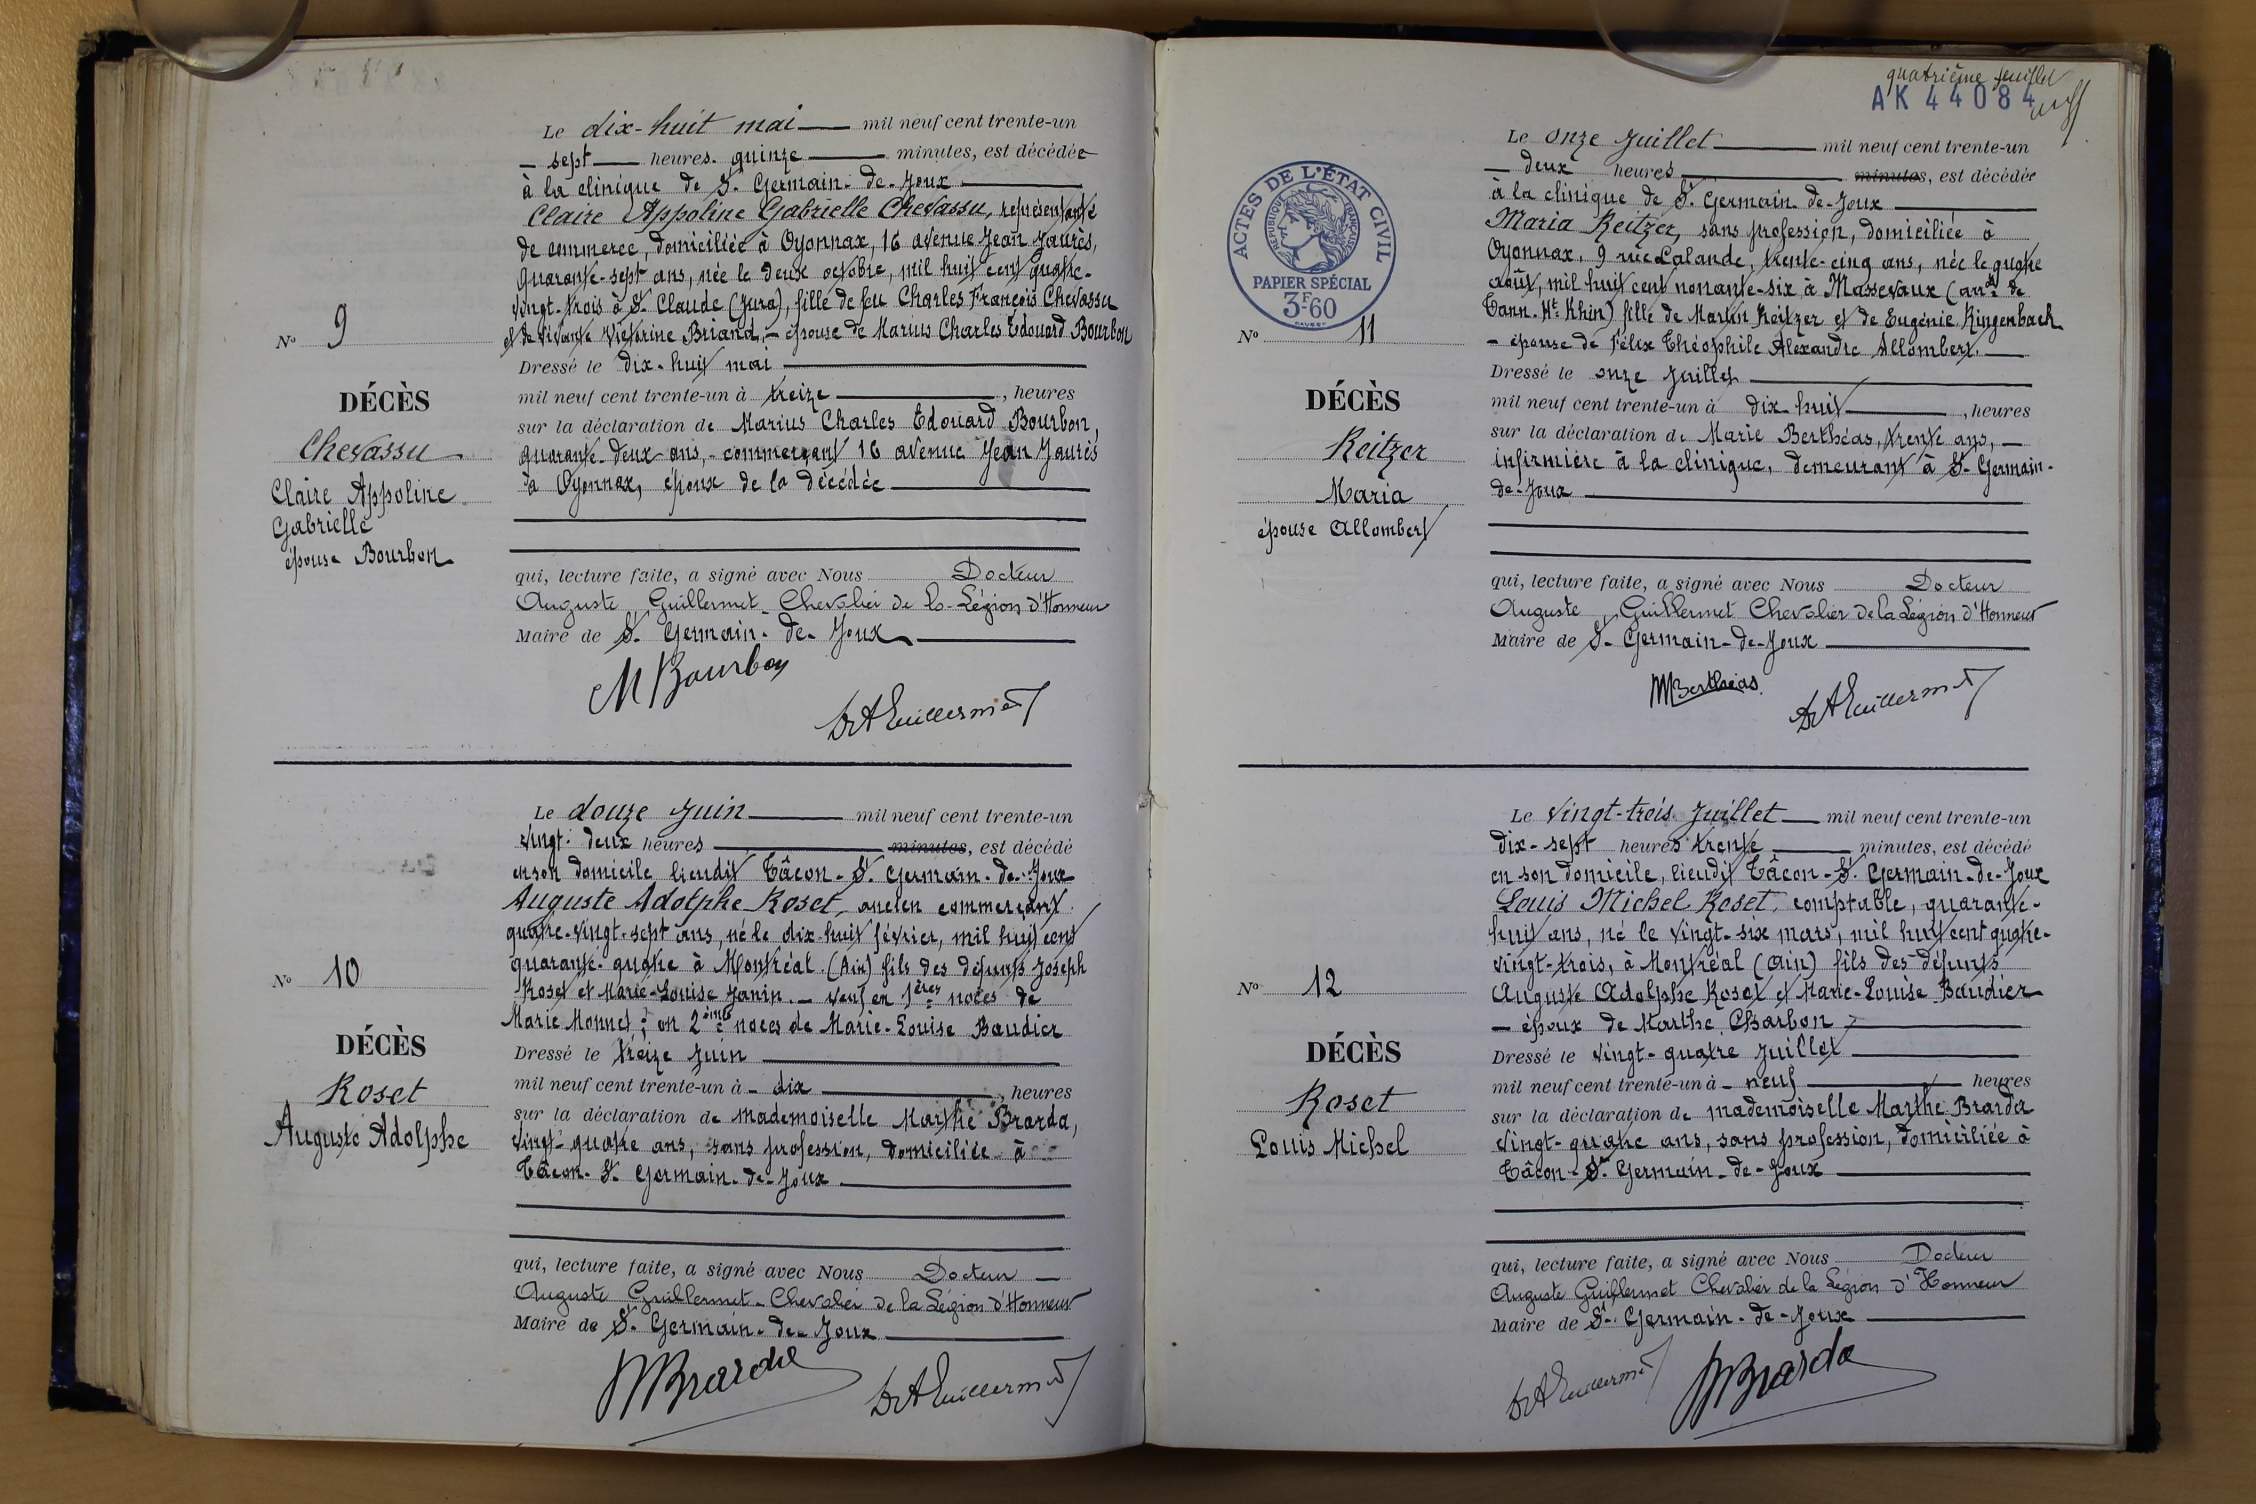 Le dix-huit mai mil neuf cent trente-un
sept heures quinze minutes, est décédée
à la clinique de St. Germain-de-Joux
Claire Appoline Gabrielle Chevassu, représentante
de commerce, domiciliée à Oyonnax, 16 avenue Jean Jaurès,
quarante-sept ans, née le deux octobre, mil huit cent quatre-
vingt-trois à St. Claude (Jura), fille de feu Charles François Chevassu
et de vivante Victorine Briand, - épouse de Marius Charles Édouard Bourbon
No 9
Dressé le dix-huit mai
DÉCÈS
mil neuf cent trente-un à treize, heures
sur la déclaration de Marius Charles Edouard Bourbon,
Chevassu
quarante-deux ans, - commerçant 16 avenue Jean Jaurès
Claire Appoline
à Oyonnax, époux de la décédée
Gabrielle
épouse Bourbon
qui, lecture faite, a signé avec Nous Docteur
Auguste Guillermet Chevalier de la Légion d'Honneur
Maire de St. Germain-de-Joux
M Bourbon
Dr A Guillermet
Le douze Juin mil neuf cent trente-un
vingt-deux heures minutes, est décédé
en son domicile lieudit Tâcon-St. Germain-de-Joux
Auguste Adolphe Roset, ancien commerçant
quatre-vingt-sept ans, né le dix-huit février, mil huit cent
quarante-quatre à Montréal (Ain) fils des défunts Joseph
No 10
Roset et Marie-Louise Janin. - veuf en 1ères noces de
Marie Monnet; en 2èmes noces de Marie-Louise Baudier
DÉCÈS
Dressé le treize Juin
Roset
mil neuf cent trente-un à - dix, heures
Auguste Adolphe
sur la déclaration de mademoiselle Marthe Brarda,
vingt-quatre ans, sans profession, domiciliée à
Tâcon-St. Germain-de-Joux
qui, lecture faite, a signé avec Nous Docteur
Auguste Guillermet Chevalier de la Légion d'Honneur
Maire de St. Germain-de-Joux
M Brarda
Dr A Guillermet
quatrième feuillet
AK 44084
Le onze Juillet mil neuf cent trente-un
deux heures minutes, est décédée
ACTES DE L'ÉTAT CIVIL
RÉPUBLIQUE FRANÇAISE
PAPIER SPÉCIAL
3F60
à la clinique de St. Germain-de-Joux
Maria Reitzer, sans profession, domiciliée à
Oyonnax, 9 rue Lalande, trente-cinq ans, née le quatre
août, mil huit cent nonante-six à Massevaux (anct de
Tann. Ht. Rhin) fille de Martin Reitzer et de Eugénie Ringenbach
No 11
- épouse de Félix Théophile Alexandre Allombert.
Dressé le onze Juillet
DÉCÈS
mil neuf cent trente-un à dix-huit, heures
Reitzer
sur la déclaration de Marie Berthéas, trente ans, -
infirmière à la clinique, demeurant à St-Germain-
Maria
de-Joux
épouse Allombert
qui, lecture faite, a signé avec Nous Docteur
Auguste Guillermet Chevalier de la Légion d'Honneur
Maire de St-Germain-de-Joux
M Berthéas.
Dr A Guillermet
Le vingt-trois Juillet mil neuf cent trente-un
dix-sept heures trente minutes, est décédé
en son domicile, lieudit Tâcon-St. Germain-de-Joux
Louis Michel Roset, comptable, quarante-
huit ans, né le vingt-six mars, mil huit cent quatre-
vingt-trois, à Montréal (Ain) fils des défunts
No 12
Auguste Adolphe Roset et Marie-Louise Baudier
- époux de Marthe Charbon
DÉCÈS
Dressé le vingt-quatre Juillet
mil neuf cent trente-un à - neuf heures
Roset
sur la déclaration de mademoiselle Marthe Brarda
Louis Michel
vingt-quatre ans, sans profession, domiciliée à
Tâcon-St. Germain-de-Joux
qui, lecture faite, a signé avec Nous Docteur
Auguste Guillermet Chevalier de la Légion d'Honneur
Maire de St. Germain-de-Joux
Dr A Guillermet
M Brarda